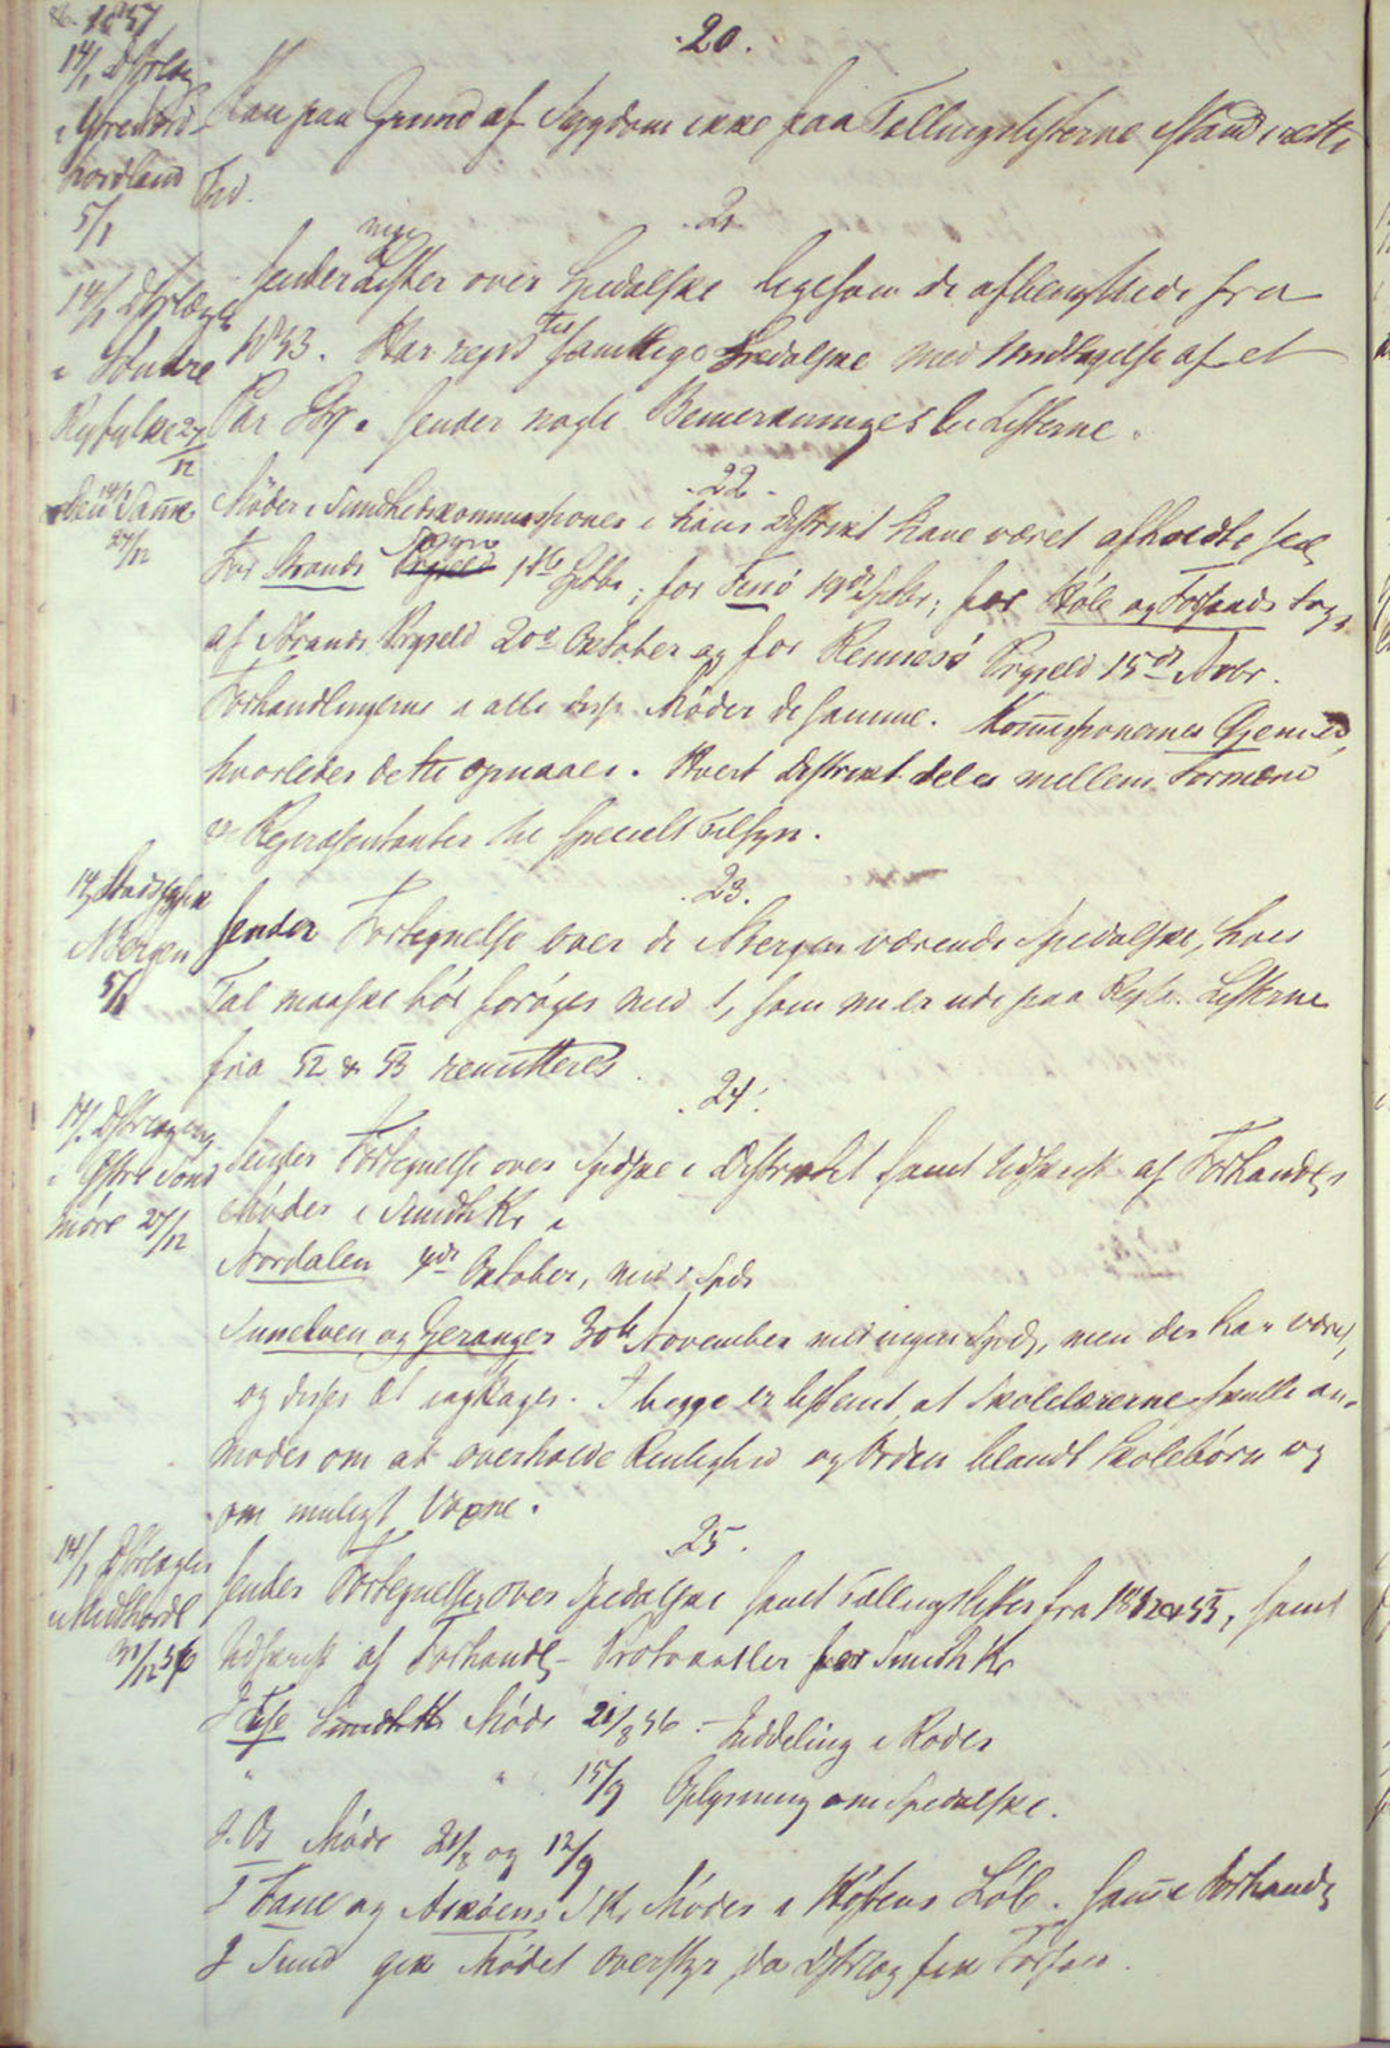 1857
.20.
14/1 Dstrlæg
i
Nordland
5/1
Kan paa Grund af Sygdom ikke faa Tællingslisterne istand i rette
Tid.
.21
14/1 Dstrlæge
i Søndre
Ryfylke 27/12
nye
Sender Lister over Spedalske ligesom de afbenyttede fra
1853. Har reist til samtlige Spedalske med Undtagelse af et
Par Stk. Sender nogle Bemærkninger til Listerne.
.22.
14/1 Samme
27/12
Møder i Sundhedskommissionen i hans Distrikt have været afholdte
Sogn
For Strands Prgjeld 1ste Septbr; for Finnø 19de Septbr; for Høle og Forsands Sogn
af Strands Prgjeld 20de Oktober og for Rennesø Prgjeld 15de Novbr.
Forhandlingerne i alle disse Møder de samme. Kommissionernes Øjemed,
hvorledes dette opnaaes. Hvert Distrikt deles mellem Formænd
og Repræsentanter til specielt Tilsyn.
.23.
14/1 Stadsfysik
i Bergen
5/1
Sender Fortegnelse over de i Bergen værende Spedalske, hvis
Tal maaske bør forøges med 1, som nu er ude paa Reise. Listerne
fra 52 & 53 remitteres.
.24.
14/1 Dstrlægen
i Østre Sønd
møre 27/12
Sender Fortegnelse over Spedske i Distriktet samt Udskrift af Forhandl.
Møder i SundhK. i
Nordalen 4de Oktober, med 2 Spds
Sunelven og Geranger 30te November med ingen Spds, men der har været,
og disses Æt iagttages. I begge er bestemt at Skolelærerne skulle an-
modes om at overholde Renlighed og Orden blandt Skolebørn og
om muligt Voxne.
.25.
14/1 Dstrlægen
i Midthordl
31/12 56
Sender Fortegnelser over Spedalske samt Tællingslister fra 1852 & 53, samt
Udskrift af Forhandl- Protokoller for SundhK.
I Fuse SundhK. Møde 21/8 56 - Inddeling i Roder
" " 15/9 Oplysning om Spedalske.
I Os Møde 21/8 og 12/9
I Fane og Askøens SK. Møder i Høstens Løb. Samme Forhandl.
I Sund gik Mødet overstyr, da Dstrlæg fik Forfald.